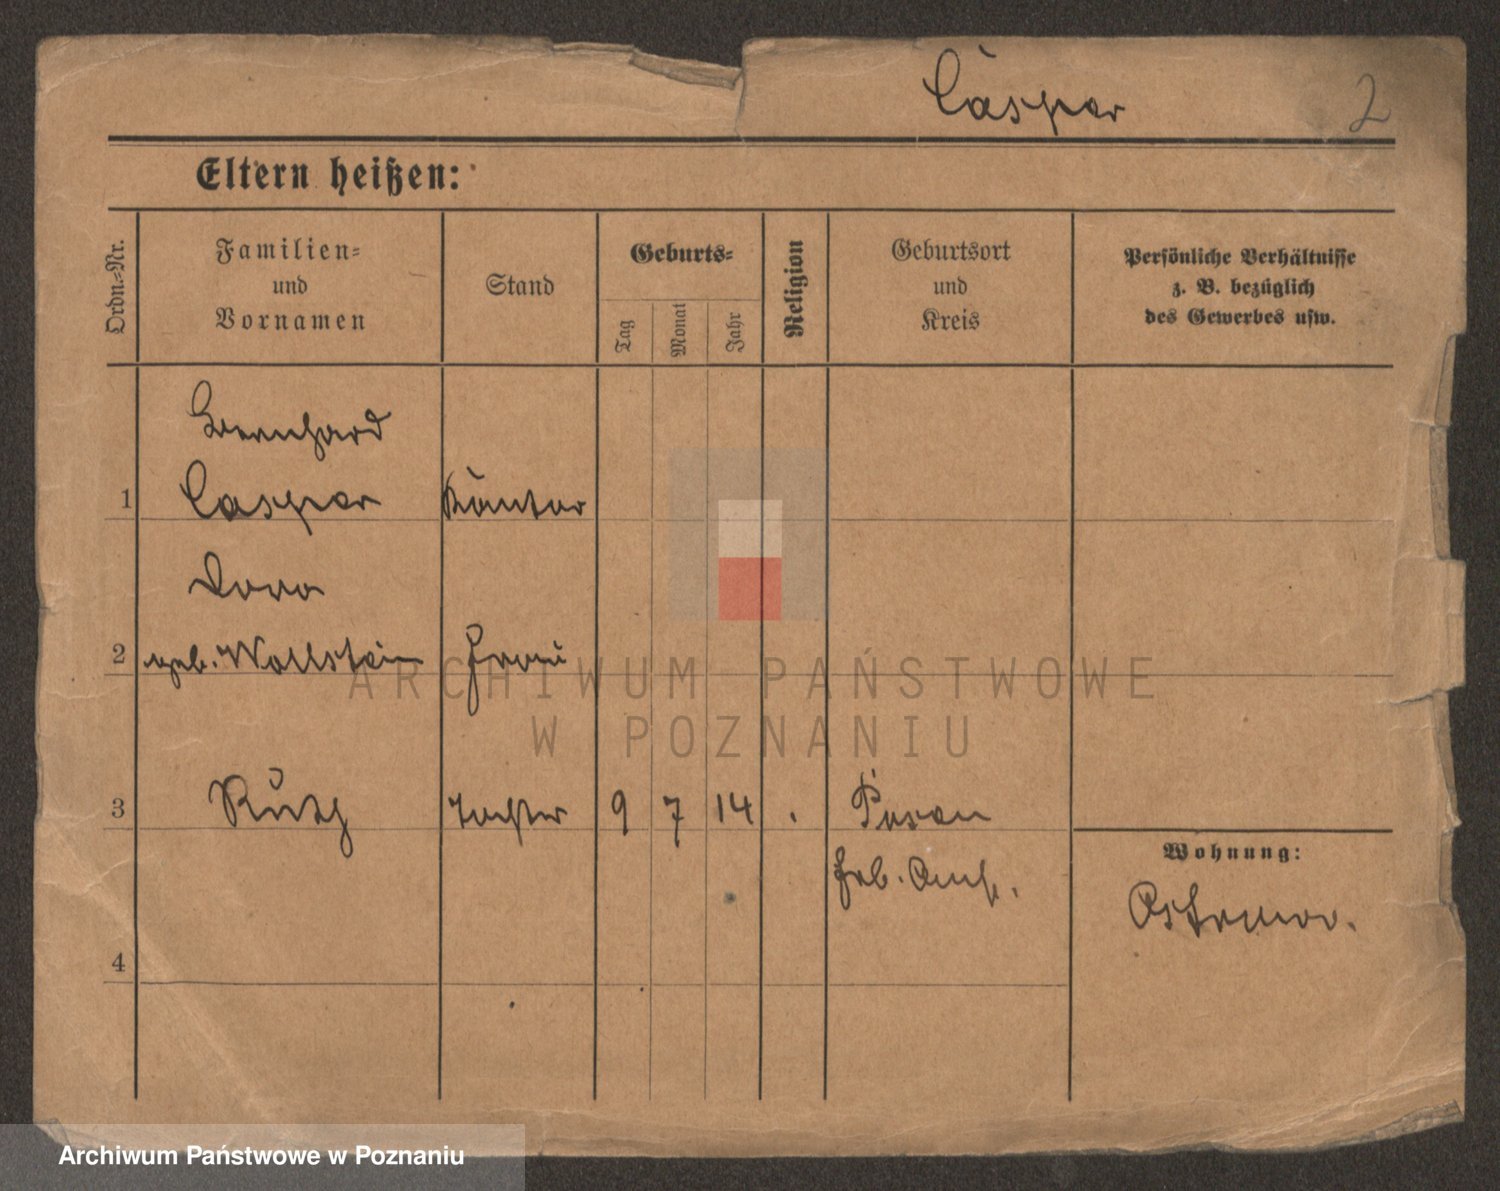 Caspar
2
Eltern heißen:
Ordn.-Nr.
Familien-
und
Vornamen
Stand
Geburts-
Tag
Monat
Jahr
Religion
Geburtsort
und
Kreis
Persönliche Verhältnisse
z. B. bezüglich
des Gewerbes usw.
Bernhard
1 Caspar Kantor
Dora
2 geb. Wollstein Frau
3 Ruth Tochter 9 7 14 . Posen
Wohnung:
Geb.
4
ARCHIWUM PAŃSTWOWE
W POZNANIU
Archiwum Państwowe w Poznaniu